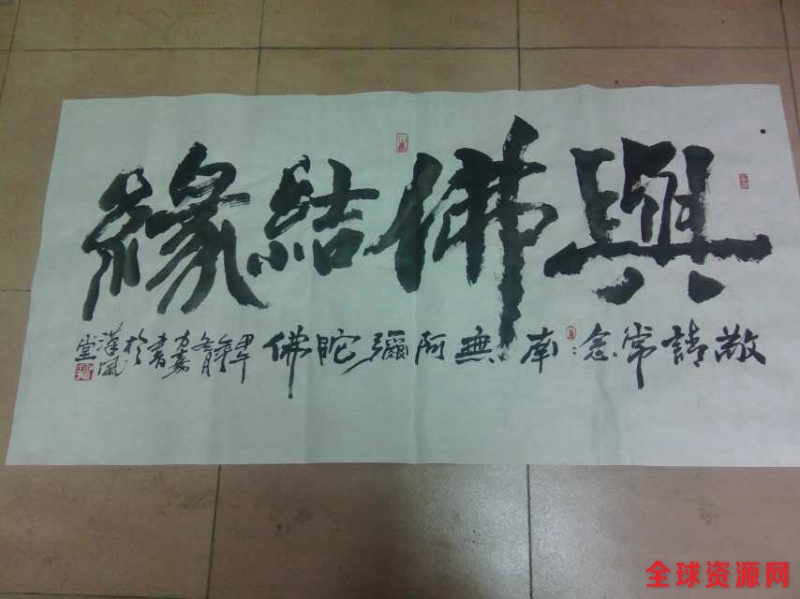 與佛結緣
敬請常念：南無阿彌陀佛
甲午年
書於
漢風
堂
全球资源网